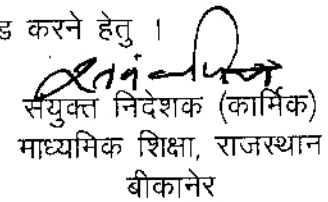 करने हेतु ।
संयुक्त निदेशक (कार्मिक)
माध्यमिक शिक्षा, राजस्थान
बीकानेर